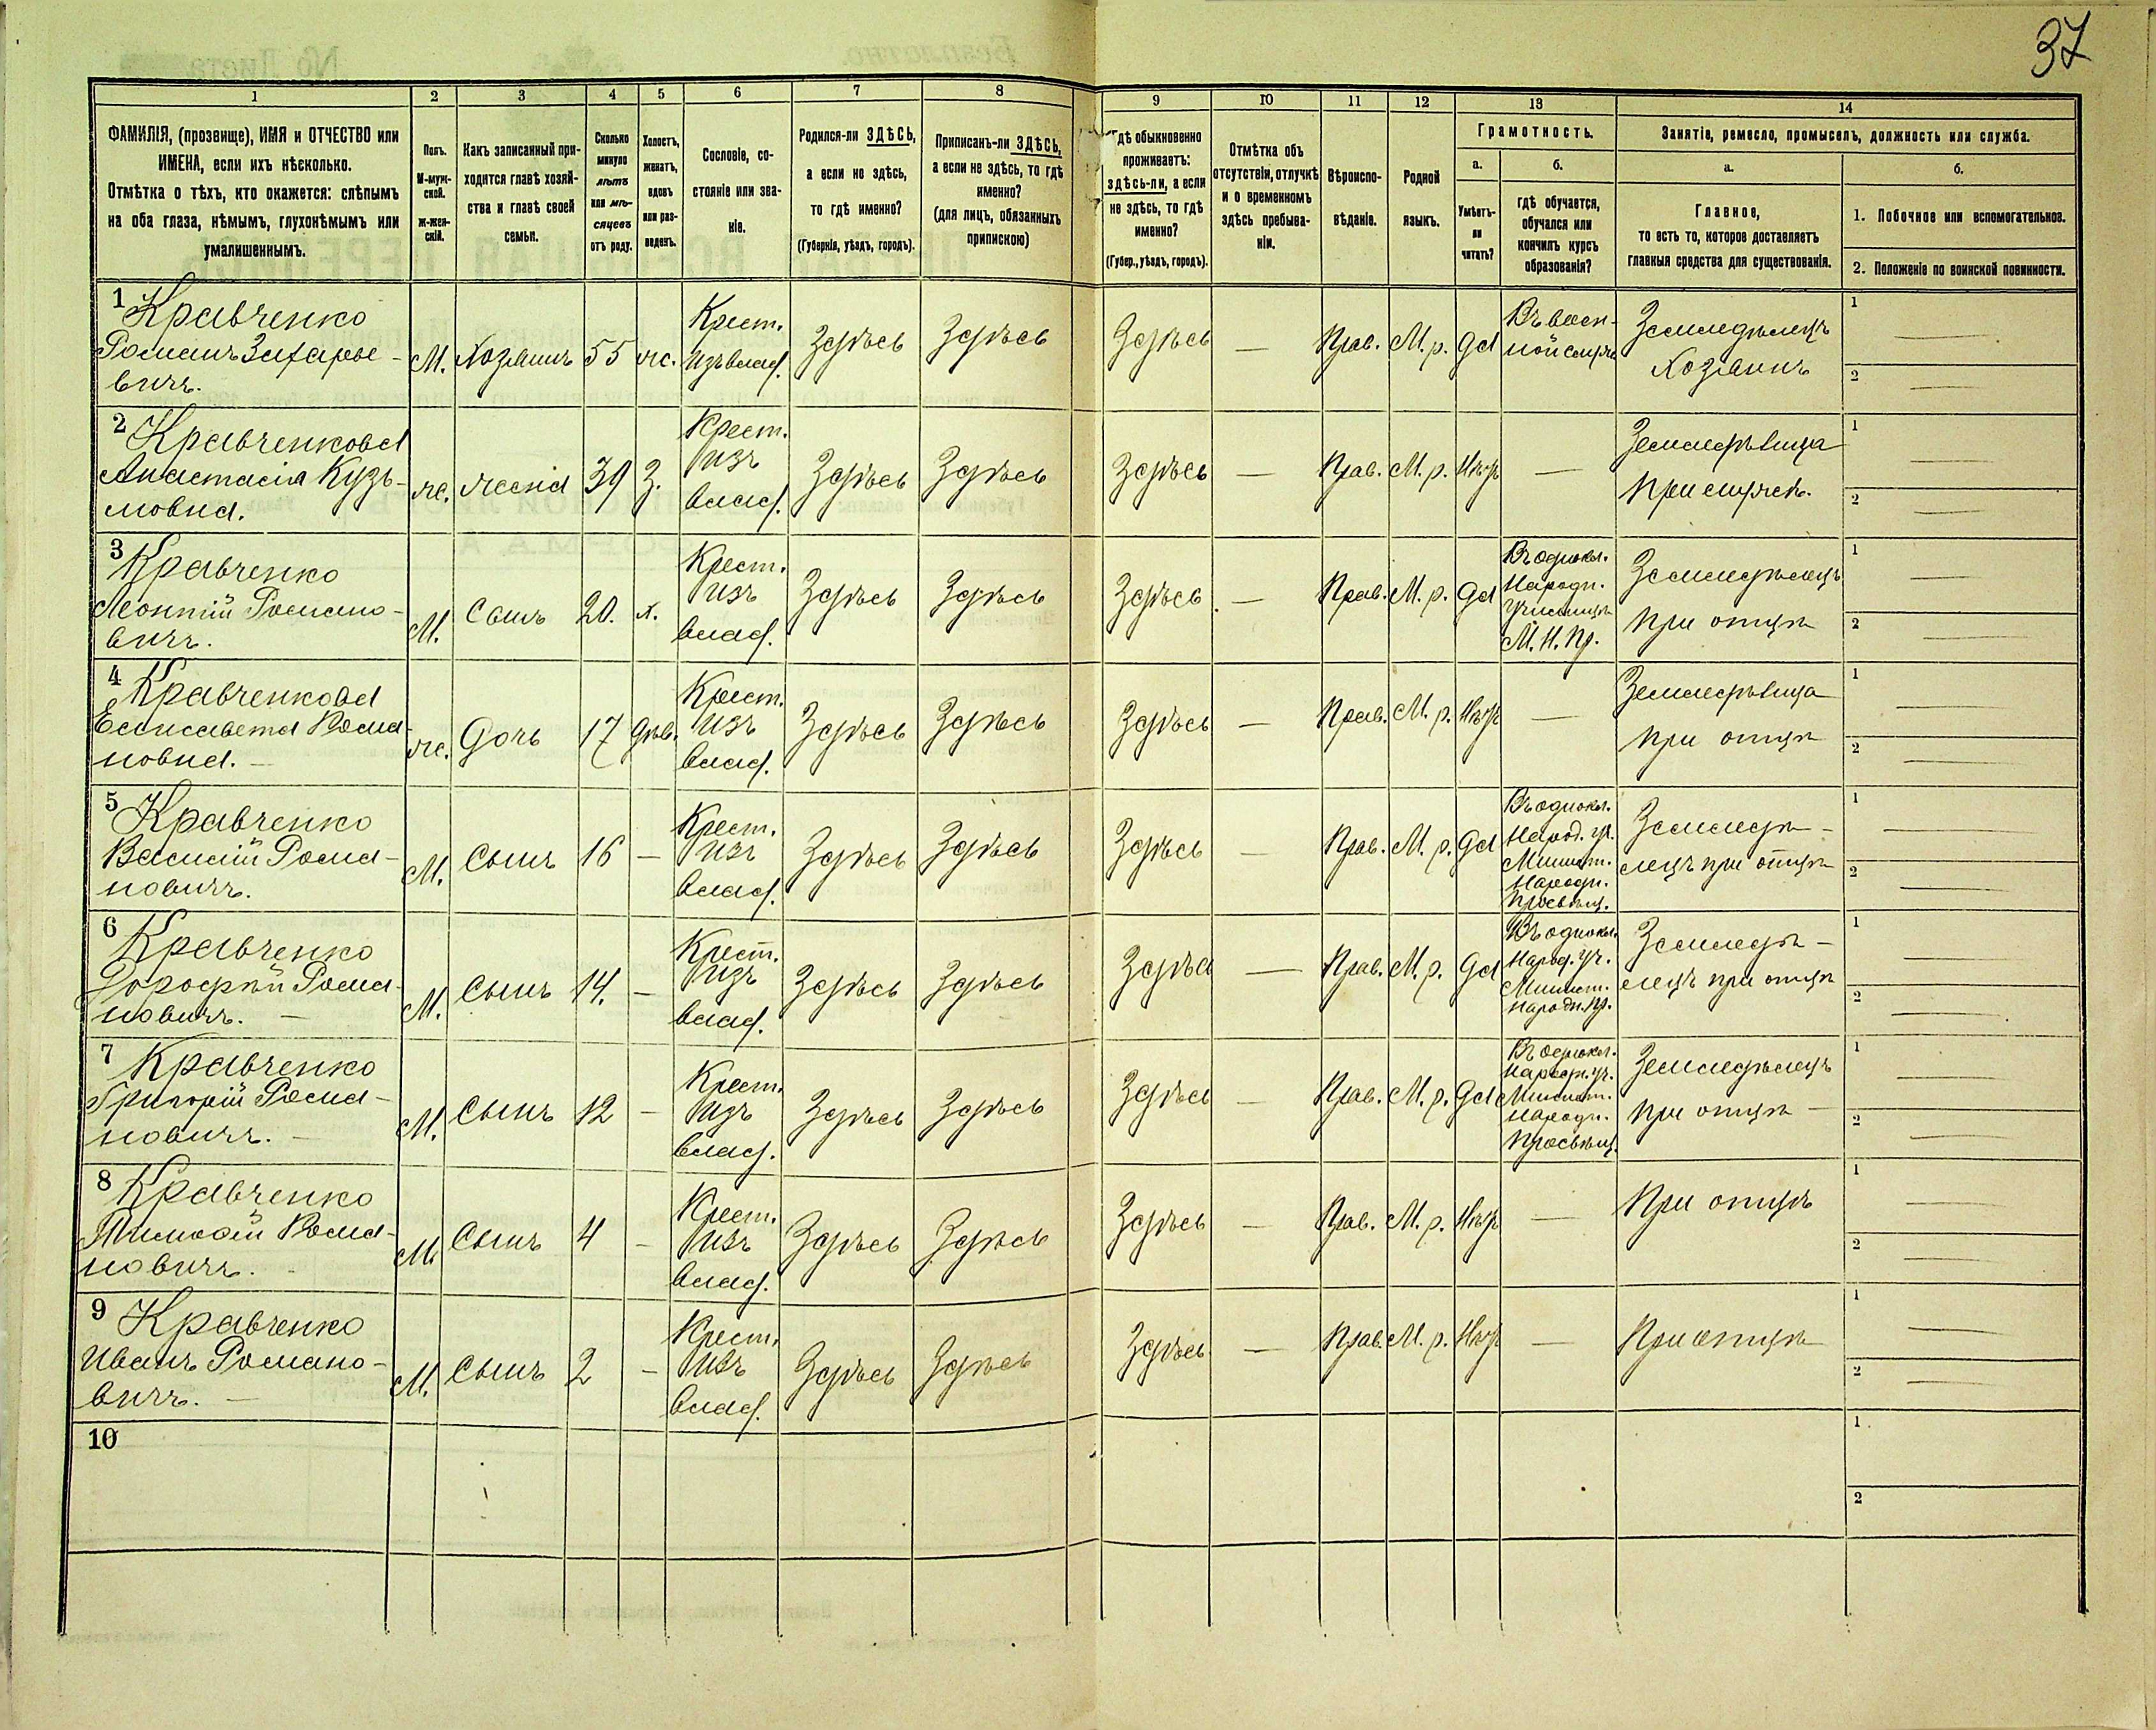 37
1 2 3 4 5 6 7 8 9 10 11 12 13 14
ФАМИЛІЯ, (прозвище), ИМЯ и ОТЧЕСТВО или
ИМЕНА, если ихъ нѣсколько.
Отмѣтка о тѣхъ, кто окажется: слѣпымъ
на оба глаза, нѣмымъ, глухонѣмымъ или
умалишеннымъ.
Полъ.
М-муж-
ской.
ж-жен-
скій.
Какъ записанный при-
ходится главѣ хозяй-
ства и главѣ своей
семьи.
Сколько
минуло
лѣтъ
или мѣ-
сяцевъ
отъ роду.
Холостъ,
женатъ,
вдовъ
или раз-
веденъ.
Сословіе, со-
стояніе или зва-
ніе.
Родился-ли ЗДѢСЬ,
а если не здѣсь,
то гдѣ именно?
(Губернія, уѣздъ, городъ).
Приписанъ-ли ЗДѢСЬ,
а если не здѣсь, то гдѣ
именно?
(для лицъ, обязанныхъ
припискою)
Гдѣ обыкновенно
проживаетъ:
здѣсь-ли, а если
не здѣсь, то гдѣ
именно?
(Губер., уѣздъ, городъ).
Отмѣтка объ
отсутствіи, отлучкѣ
и о временномъ
здѣсь пребыва-
ніи.
Вѣроиспо-
вѣданіе.
Родной
языкъ.
Грамотность.
а.
Умѣетъ-
ли
читать?
б.
гдѣ обучается,
обучался или
кончилъ курсъ
образованія?
Занятіе, ремесло, промыселъ, должность или служба.
а.
Главное,
то есть то, которое доставляетъ
главныя средства для существованія.
б.
1. Побочное или вспомогательное.
2. Положеніе по воинской повинности.
1 Кравченко
Романъ Захарье-
вичъ.
М.
Хозяинъ
55
ж.
Крест.
изъ влад.
Здѣсь
Здѣсь
Здѣсь
—
Прав.
М. р.
Да
Въ воен-
ной службѣ
Земледѣлецъ
Хозяинъ
1 —
2 —
2 Кравченкова
Анастасія Кузь-
мовна.
ж.
жена
39
З.
Крест.
изъ
влад.
Здѣсь
Здѣсь
Здѣсь
—
Прав.
М. р.
Нѣтъ
—
Земледѣлица
При мужѣ.
1 —
2 —
3 Кравченко
Леонтій Романо-
вичъ.
М.
Сынъ
20.
х.
Крест.
изъ
влад.
Здѣсь
Здѣсь
Здѣсь
—
Прав.
М. р.
Да
Въ однокл.
Народн.
Училищѣ
М. Н. Пр.
Земледѣлецъ
При отцѣ
1 —
2 —
4 Кравченкова
Елисавета Рома-
новна. —
ж.
Дочь
17
Дѣв.
Крест.
изъ
влад.
Здѣсь
Здѣсь
Здѣсь
—
Прав.
М. р.
Нѣтъ
—
Земледѣлица
При отцѣ
1 —
2 —
5 Кравченко
Василій Рома-
новичъ.
М.
Сынъ
16
—
Крест.
изъ
влад.
Здѣсь
Здѣсь
Здѣсь
—
Прав.
М. р.
Да
Въ однокл.
Народ. уч.
Минист.
Народн.
Просвѣщ.
Земледѣ-
лецъ при отцѣ
1 —
2 —
6 Кравченко
Дорофѣй Рома-
новичъ. —
М.
Сынъ
14.
—
Крест.
изъ
влад.
Здѣсь
Здѣсь
Здѣсь
—
Прав.
М. р.
Да
Въ однокл.
Народ. уч.
Минист.
Народн. Пр.
Земледѣ-
лецъ при отцѣ
1 —
2 —
7 Кравченко
Григорій Рома-
новичъ. —
М.
Сынъ
12
—
Крест.
изъ
влад.
Здѣсь
Здѣсь
Здѣсь
—
Прав.
М. р.
Да
Въ однокл.
Народн. уч.
Минист.
Народн.
Просвѣщ.
Земледѣлецъ
При отцѣ —
1 —
2 —
8 Кравченко
Тимофѣй Рома-
новичъ.
М
Сынъ
4
—
Крест.
изъ
влад.
Здѣсь
Здѣсь
Здѣсь
—
Прав.
М. р.
Нѣтъ
—
При отцѣ
1 —
2 —
9 Кравченко
Иванъ Романо-
вичъ. —
М.
Сынъ
2
—
Крест.
изъ
влад.
Здѣсь
Здѣсь
Здѣсь
—
Прав.
М. р.
Нѣтъ
—
При отцѣ
1 —
2 —
10
1
2